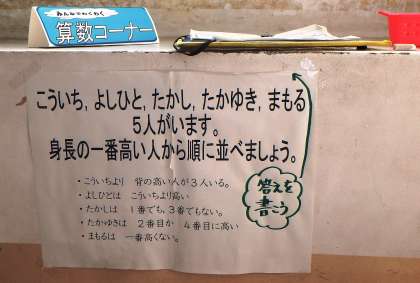 みんなでわくわく
算数コーナー
こういち，よしひと，たかし，たかゆき，まもる
5人がいます。
身長の一番高い人から順に並べましょう。
・こういちより　背の高い人が３人いる。
・よしひとは　こういちより高い
・たかしは　１番でも、３番でもない。
・たかゆきは　２番目か　４番目に高い
・まもるは　一番高くない。
答えを
書こう